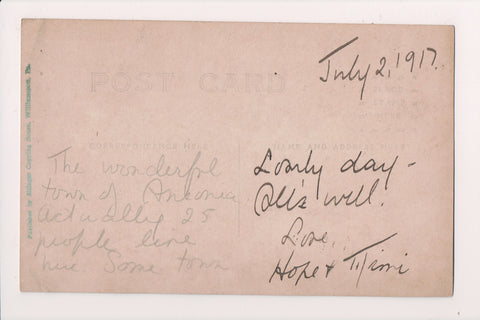 July 2, 1917.
POST CARD
CORRESPONDENCE HERE
NAME AND ADDRESS HERE
The wonderful
town of Ansonia
actually 25
people live
here Some town
Lovely day -
All's well.
Love,
Hope &
Published by Williamsport, Pa.